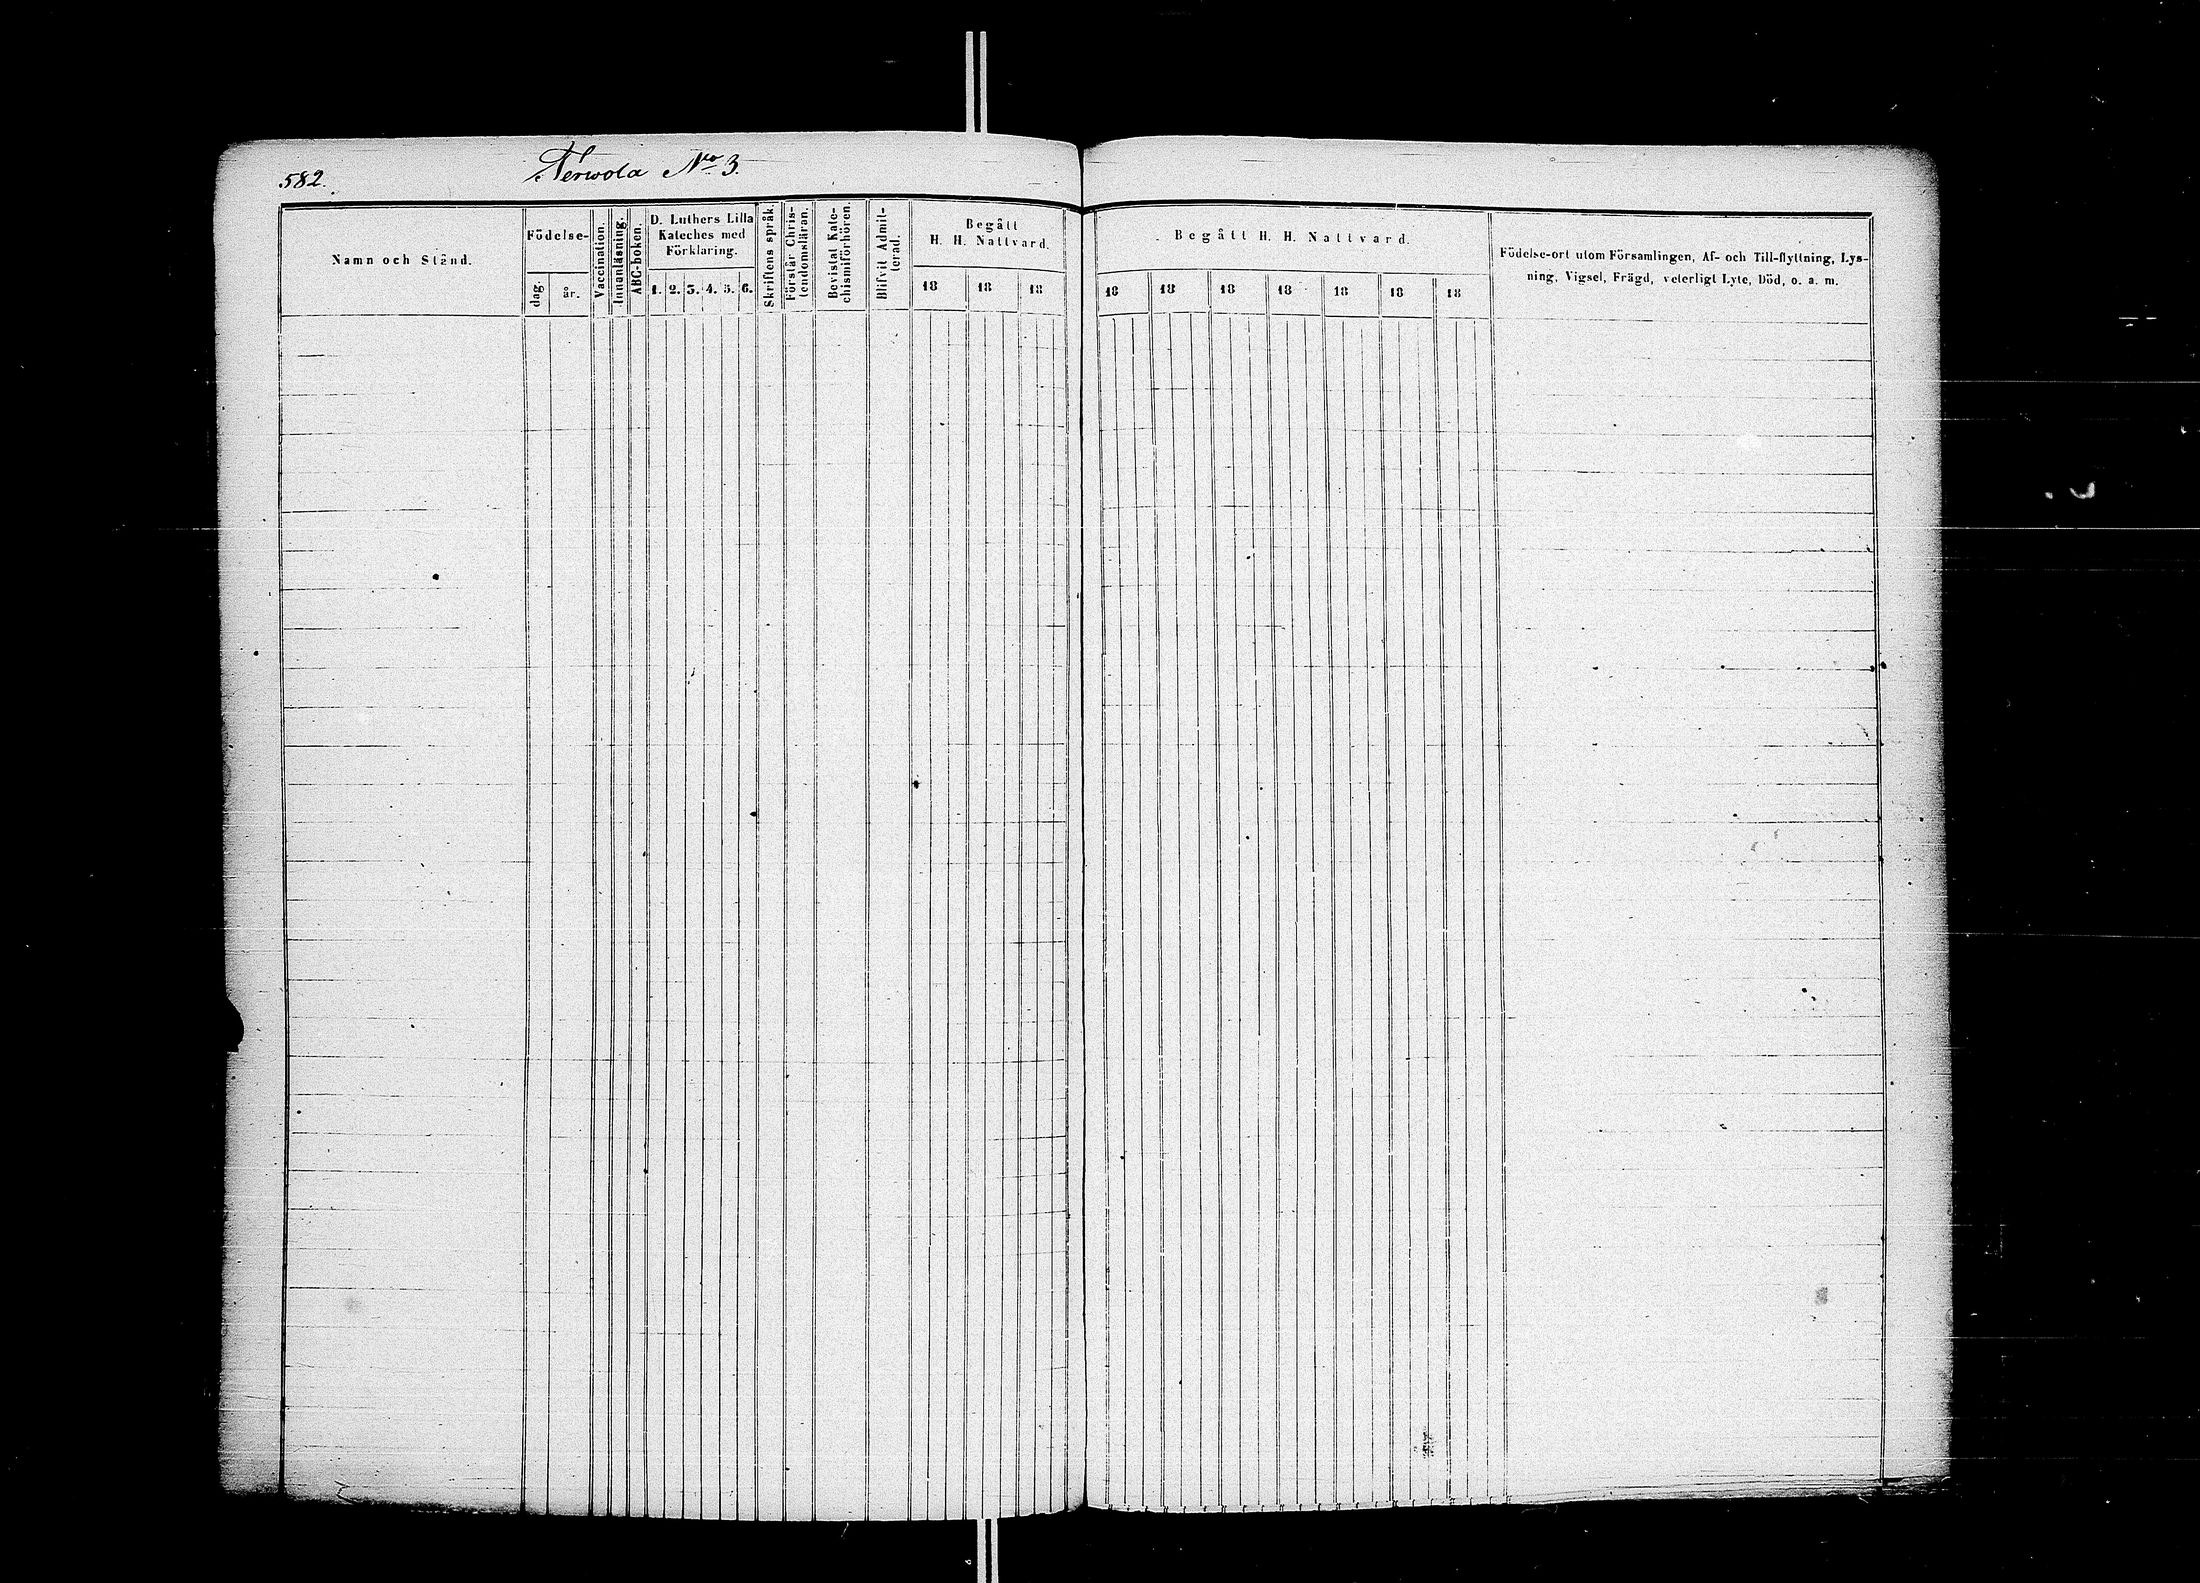 582.
Terwola No 3.
Namn och Stånd.
Födelse-
dag.
år.
Vaccination.
Innanläsning.
ABC-boken.
D. Luthers Lilla
Kateches med
Förklaring.
1. 2. 3. 4. 5. 6.
Skriftens språk.
Förstår Chris-
tendomsläran.
Bevistat Kate-
chismiförhören.
Blifvit Admit-
terad.
Begått
H. H. Nattvard.
18 18 18
Begått H. H. Nattvard.
18 18 18 18 18 18 18
Födelse-ort utom Församlingen, Af- och Till-flyttning, Lys-
ning, Vigsel, Frägd, veterligt Lyte, Död, o. a. m.